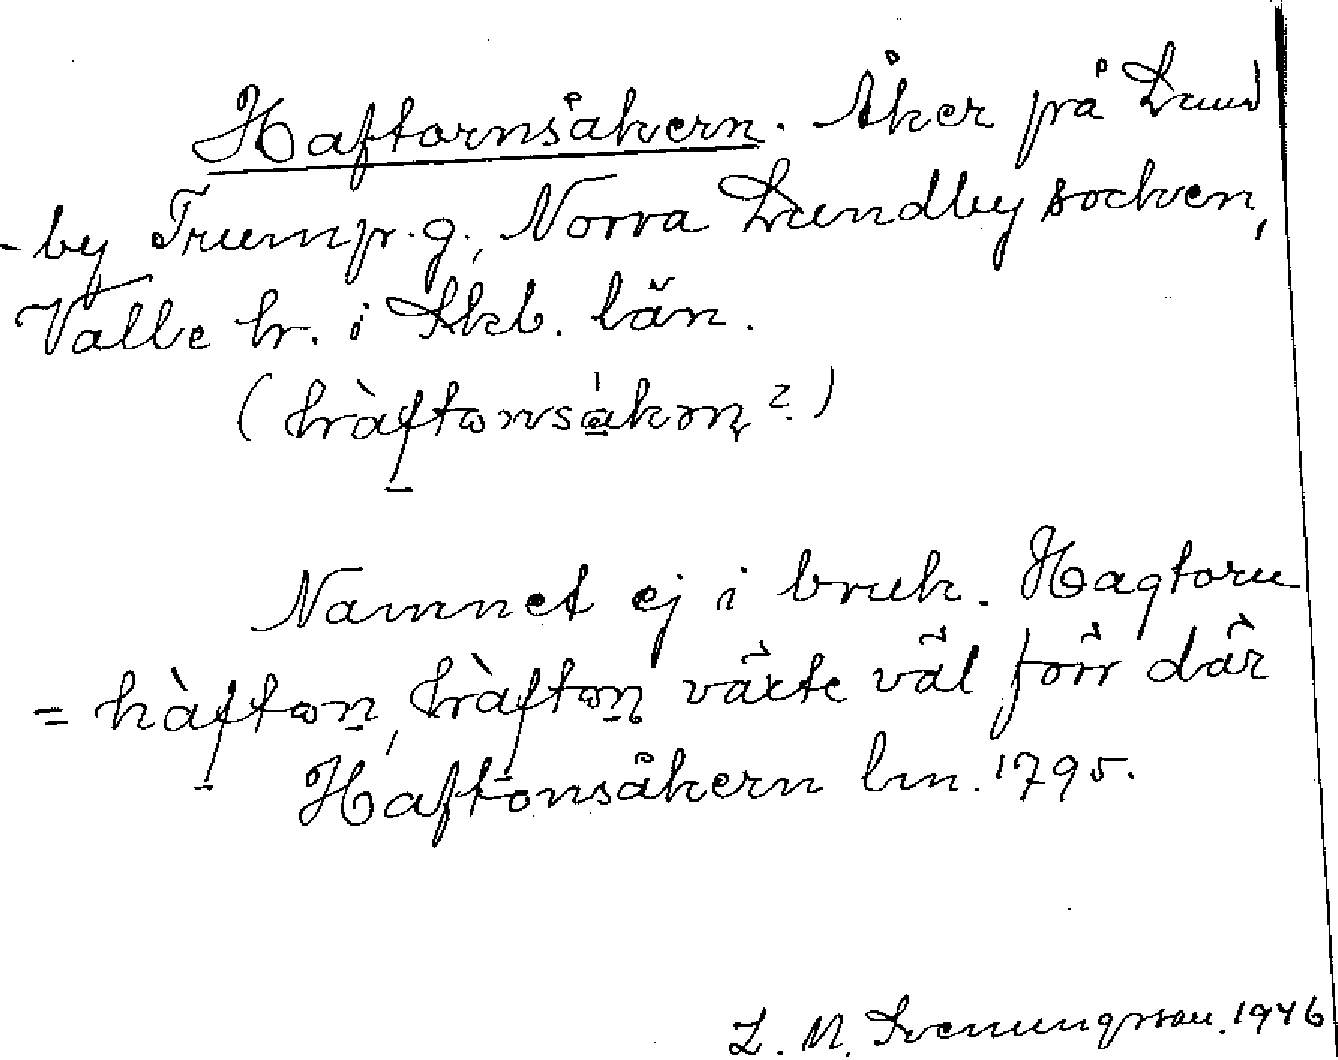 Haftornsåkern. Åker på Lund
-by Trump.g., Norra Lundby socken,
Valle hr. i Skb. län.
(hàftωnsákən?)
Namnet ej i bruk. Hagtorn
= hàftωn, hàftωn växte väl förr där
Haftonsåkern lm. 1795.
L. M. Svenungsson. 1946